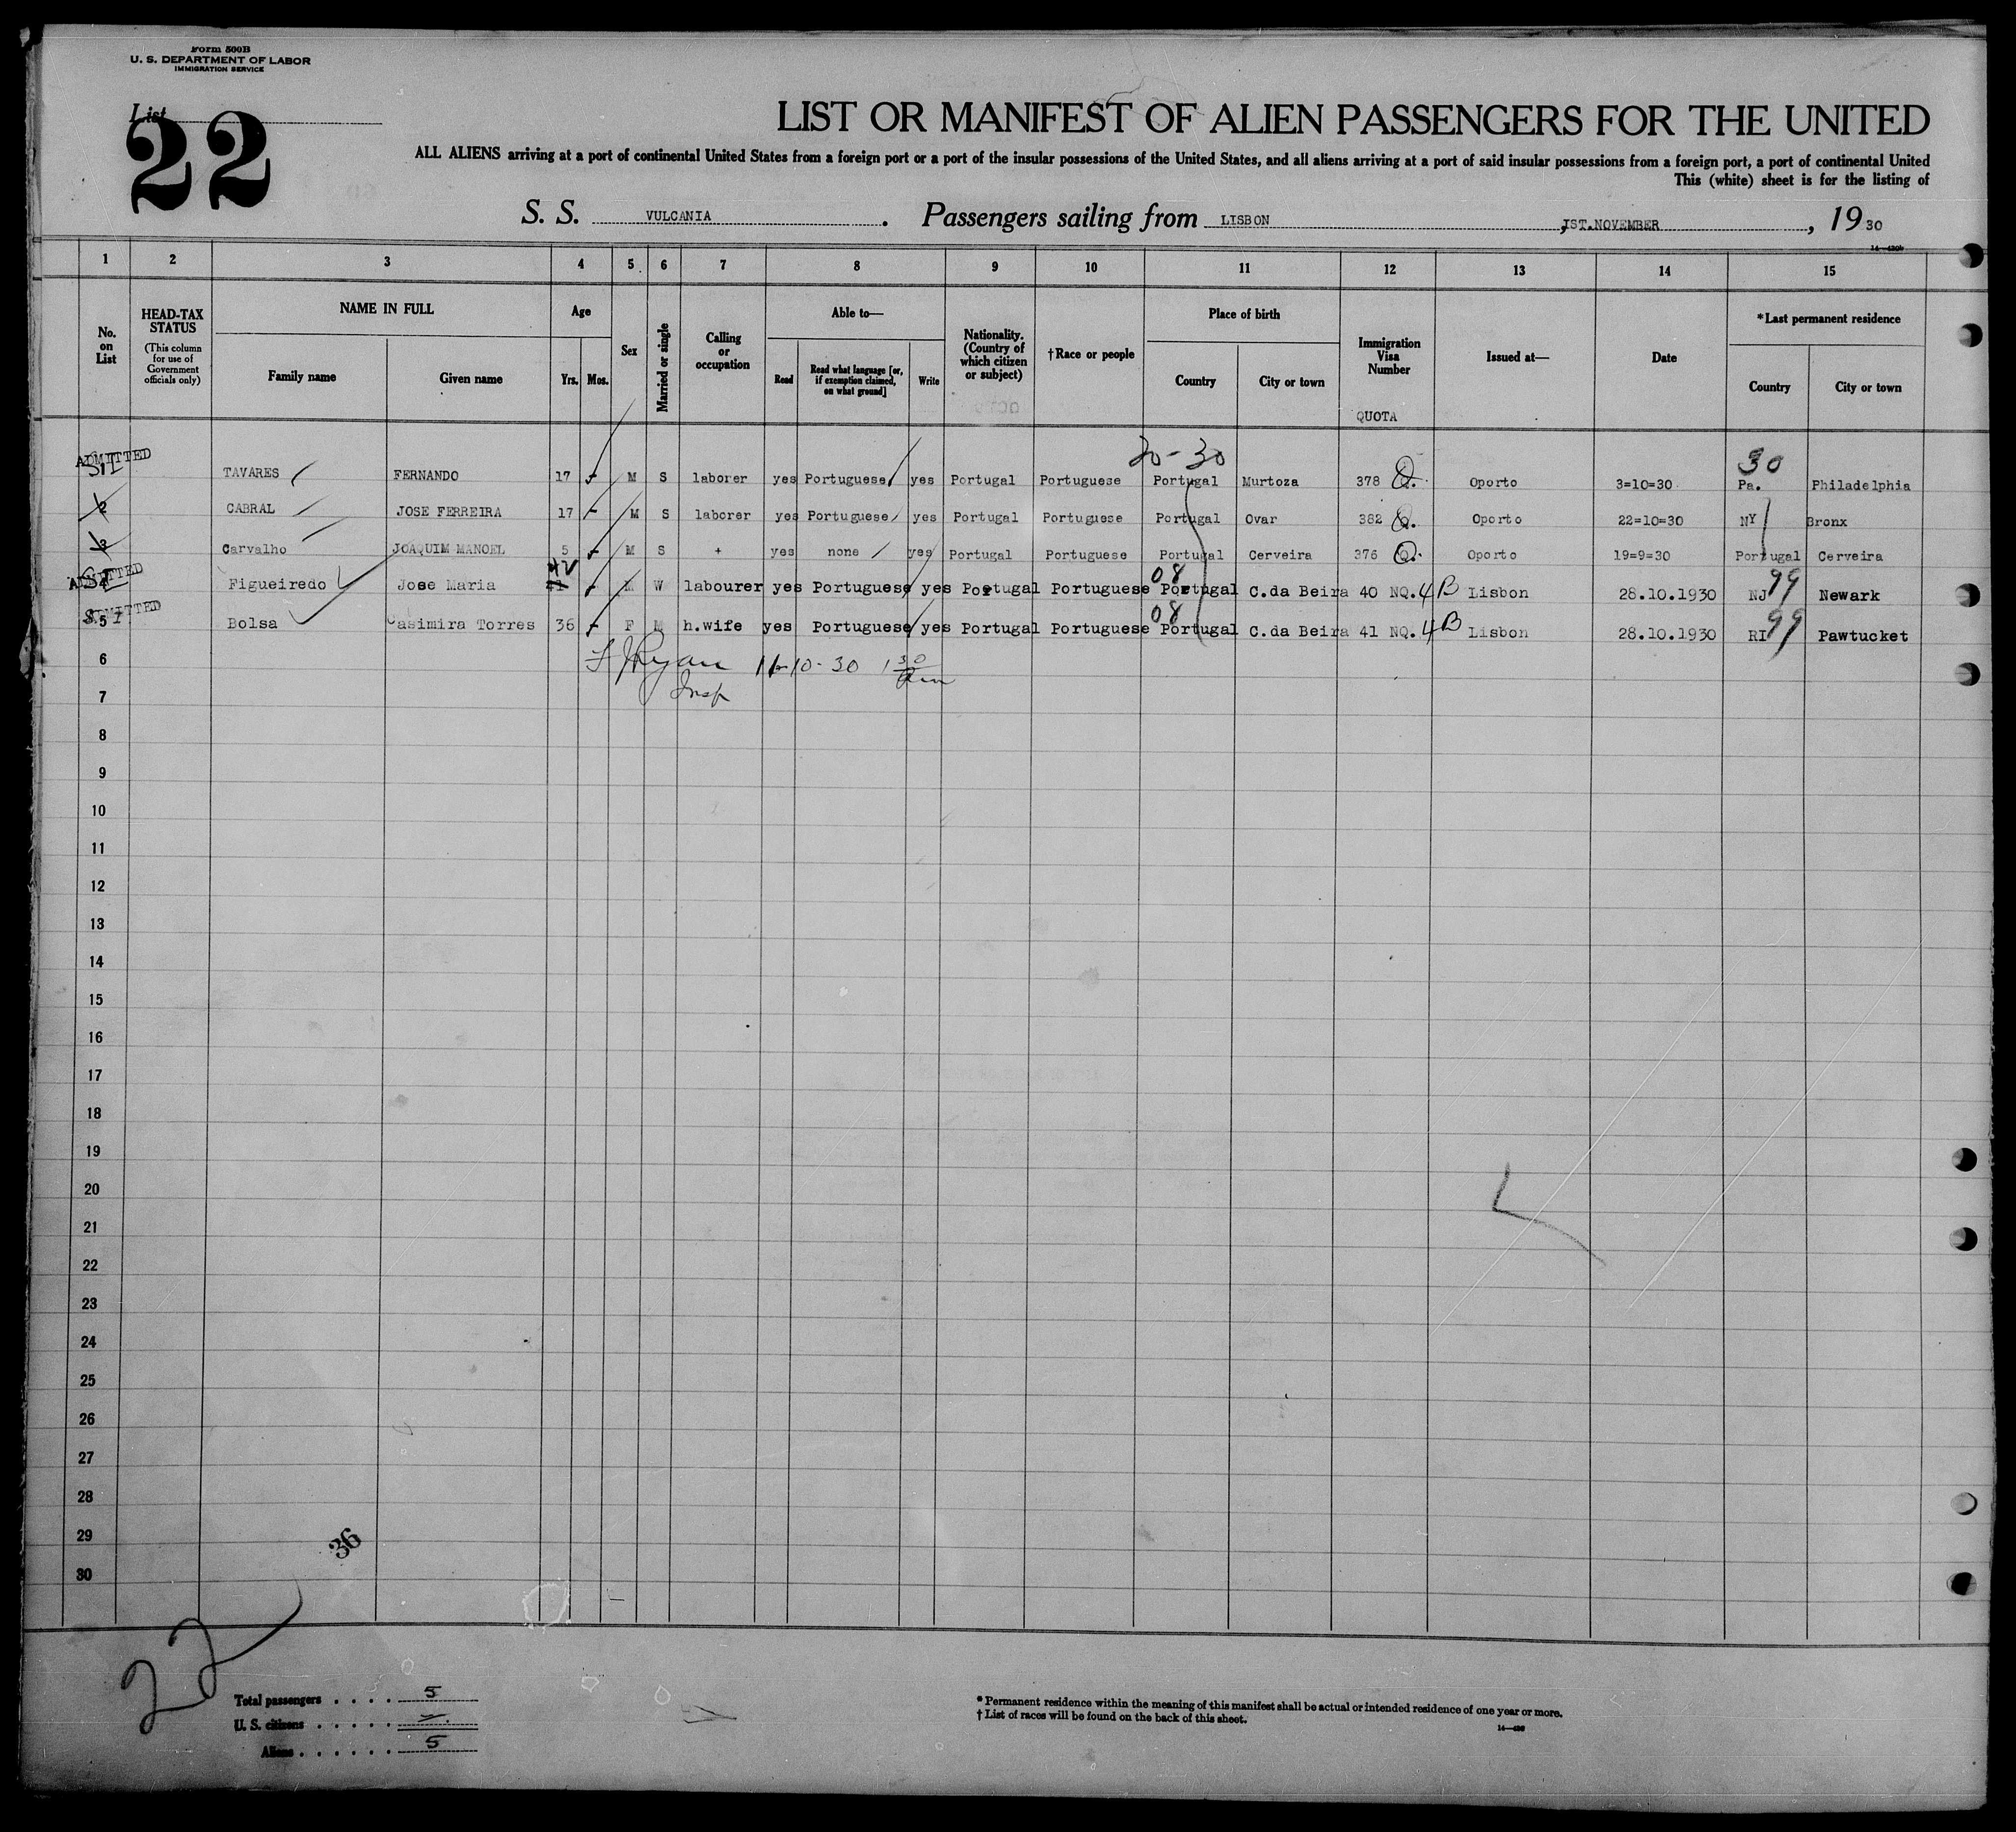 Form 500B
U. S. DEPARTMENT OF LABOR
IMMIGRATION SERVICE
List
22
LIST OR MANIFEST OF ALIEN PASSENGERS FOR THE UNITED
ALL ALIENS arriving at a port of continental United States from a foreign port or a port of the insular possessions of the United States, and all aliens arriving at a port of said insular possessions from a foreign port, a port of continental United
This (white) sheet is for the listing of
S. S. VULCANIA. Passengers sailing from LISBON, IST.NOVEMBER, 1930
1 2 3 4 5 6 7 8 9 10 11 12 13 14 15
No. on List
HEAD-TAX STATUS
(This column for use of Government officials only)
NAME IN FULL
Family name Given name
Age
Yrs. Mos.
Sex
Married or single
Calling or occupation
Able to—
Read
Read what language [or, if exemption claimed, on what ground]
Write
Nationality. (Country of which citizen or subject)
†Race or people
Place of birth
Country City or town
Immigration Visa Number
QUOTA
Issued at—
Date
*Last permanent residence
Country City or town
30-30
30
ADMITTED
1 TAVARES FERNANDO 17 - M S laborer yes Portuguese yes Portugal Portuguese Portugal Murtoza 378 Q. Oporto 3=10=30 Pa. Philadelphia
2 CABRAL JOSE FERREIRA 17 - M S laborer yes Portuguese yes Portugal Portuguese Portugal Ovar 382 Q. Oporto 22=10=30 NY Bronx
3 Carvalho JOAQUIM MANOEL 5 - M S + yes none yes Portugal Portuguese Portugal Cerveira 376 Q. Oporto 19=9=30 Portugal Cerveira
ADMITTED
4 Figueiredo Jose Maria 42 - M W labourer yes Portuguese yes Portugal Portuguese 08 Portugal C.da Beira 40 NQ. 4B Lisbon 28.10.1930 NJ 99 Newark
ADMITTED
5 Bolsa Casimira Torres 36 - F M h.wife yes Portuguese yes Portugal Portuguese 08 Portugal C.da Beira 41 NQ. 4B Lisbon 28.10.1930 RI 99 Pawtucket
6 Ryan 11-10-30 1 30
7 Insp
8
9
10
11
12
13
14
15
16
17
18
19
20
21
22
23
24
25
26
27
28
29
36
30
22
Total passengers . . . . 5
U. S. citizens . . . . . -
Aliens . . . . . . 5
* Permanent residence within the meaning of this manifest shall be actual or intended residence of one year or more.
† List of races will be found on the back of this sheet.